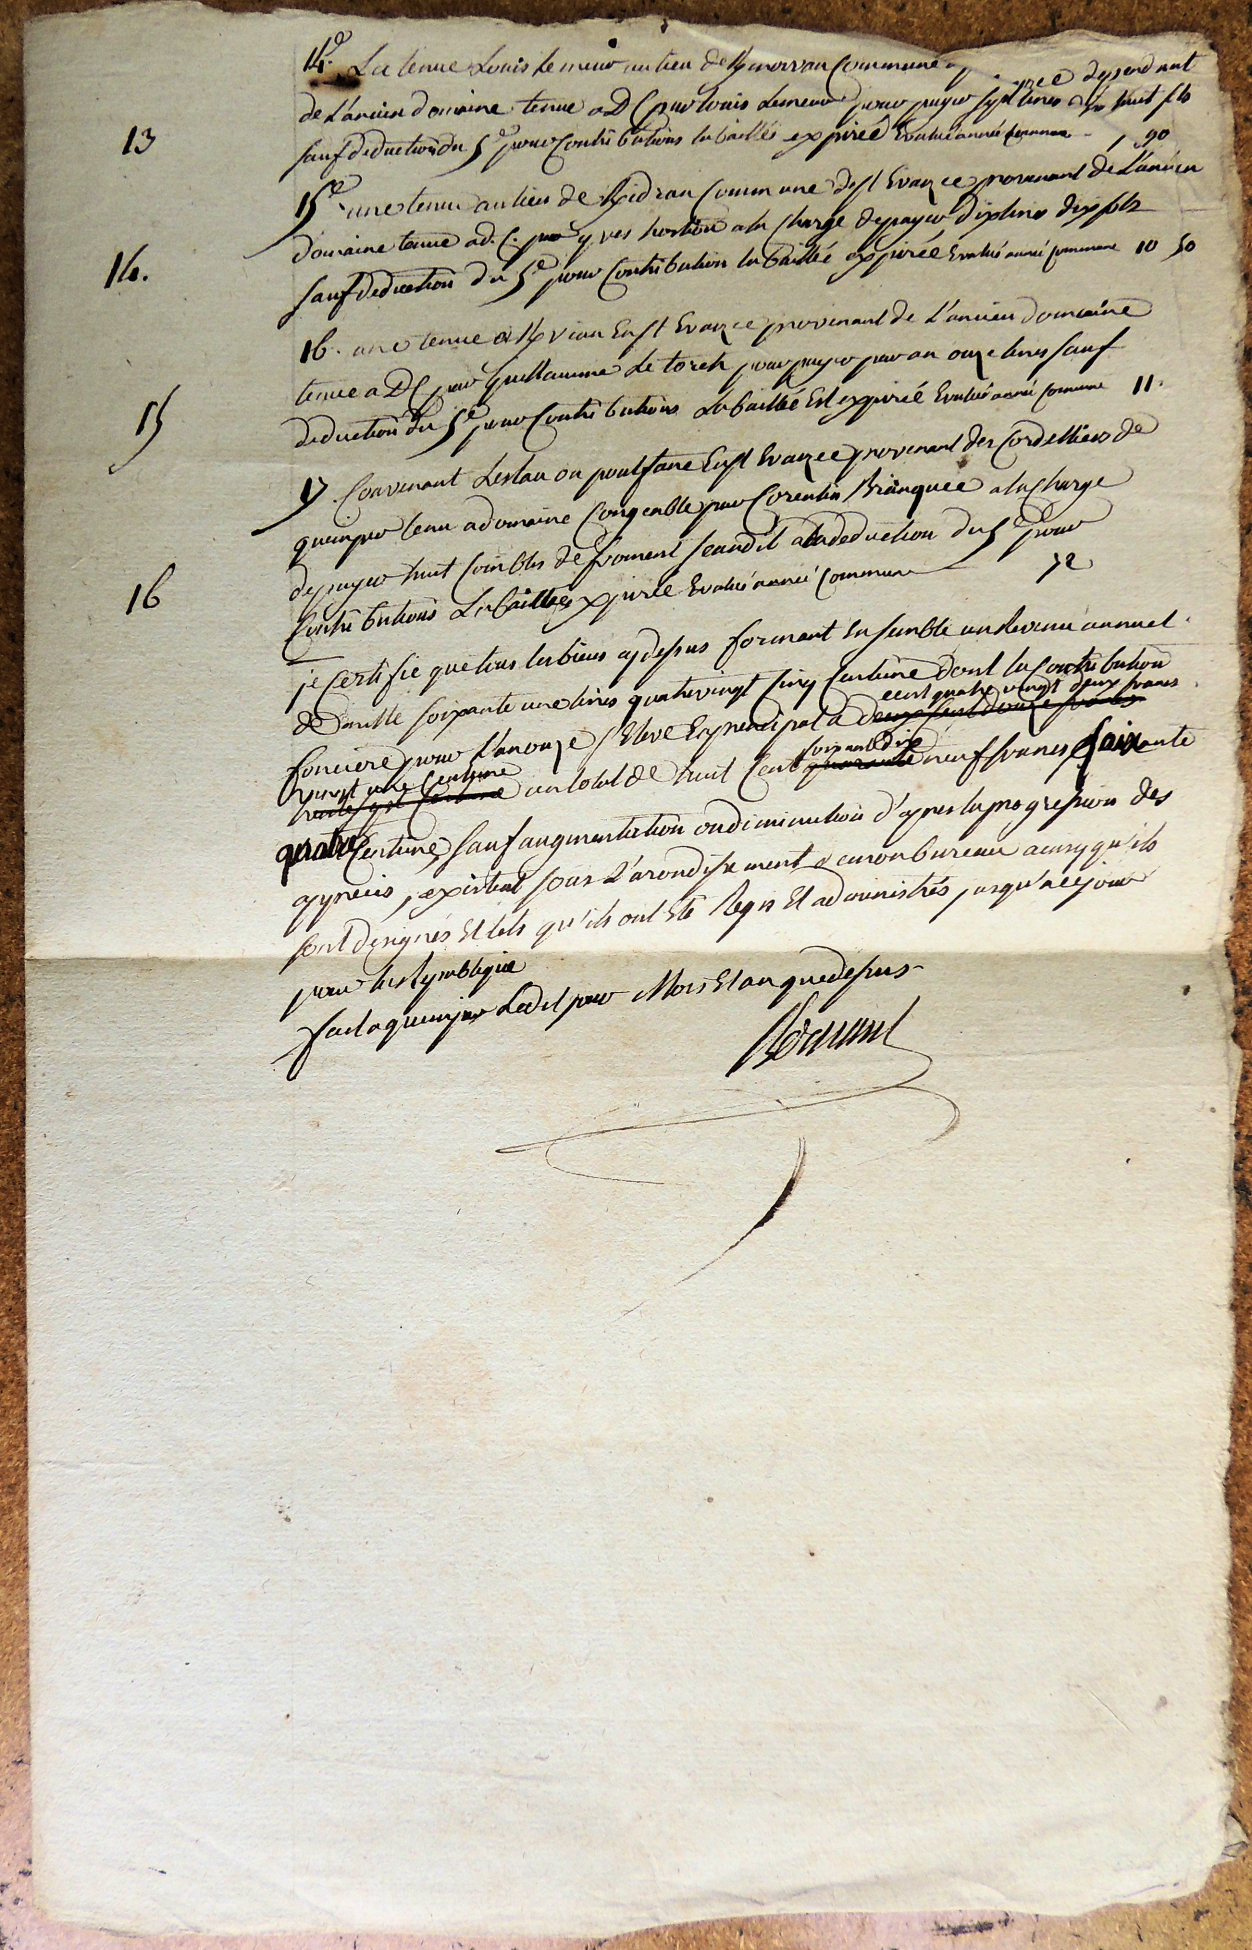 14.e La tenue Louis Le meur au lieu de Kymorvan Commune
dependant
de L'ancien domaine tenue a D C par louis Lemeur pour payer sept livres dix huit sols
13
sauf deduction du 5.e pour Contributions la baillée expirée Evaluée année commune 7 90
15.e une tenue au lieu de Kydran Commune de St Evarzec provenant de L'ancien
domaine tenue a d. C. par yves hostiou a la Charge de payer dix livres dix sols
14.
sauf deduction du 5.e pour Contribution la baillée expirée Evaluée année commune 10 50
16. une tenue a Kyvian En St Evarzec provenant de L'ancien domaine
tenue a D C par Guillaume Le torch pour payer par an onze livres sauf
15
deduction du 5.e pour Contributions La baillée Est expirée Evaluée année commune 11.
17 Convenant Leslan ou poulfanc En St Evarzec provenant des Cordelliers de
quimper tenu a domaine Congeable par Corentin Brianquec a la Charge
de payer huit Combles de froment a la deduction du 5.e pour
16
Contributions La baillée expirée Evaluée année commune 72
je Certifie que tous les biens cy dessus formant Ensemble un Revenu annuel
de mille soixante une livres quatrevingt Cinq Centime dont la Contribution
cent quatre vingt deux francs
fonciere pour L'an onze S'Eleve En principal a deux cent douze francs
vingt une Centime soixante dix
un total de huit Cent quarante neuf francs soixante
quatre Centime, sauf augmentation ou diminution d'apres la progression des
apprecis, existent sous L'arondissement de mon bureau ainsy qu'ils
sont designés Et tels qu'ils ont Eté Regis Et administrés jusqu'a ce jour
pour la Republique
fait a quimper Ledit jour Mois Et an que dessus